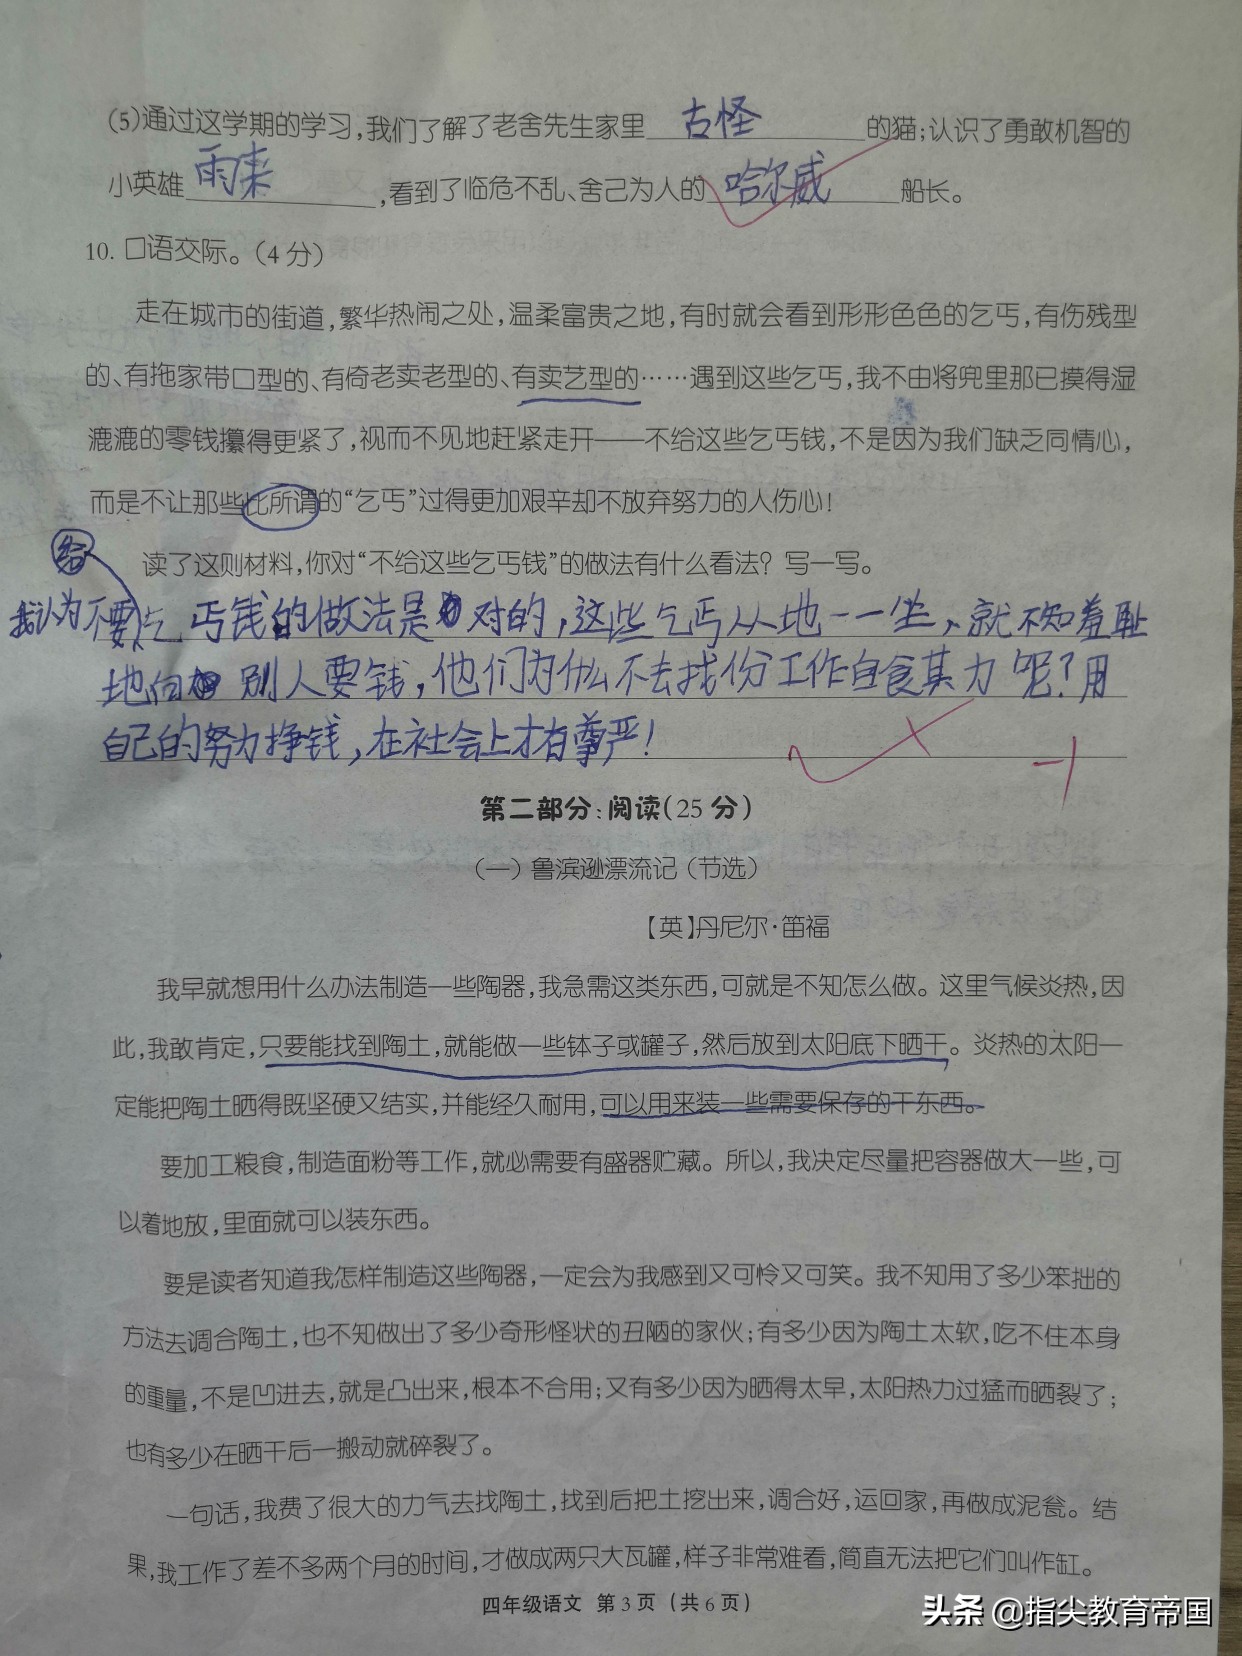 (5)通过这学期的学习,我们了解了老舍先生家里 古怪 的猫;认识了勇敢机智的
小英雄 雨来 ,看到了临危不乱、舍己为人的 哈尔威 船长。
10. 口语交际。(4分)
走在城市的街道,繁华热闹之处,温柔富贵之地,有时就会看到形形色色的乞丐,有伤残型
的、有拖家带口型的、有倚老卖老型的、有卖艺型的……遇到这些乞丐,我不由将兜里那已摸得湿
漉漉的零钱攥得更紧了,视而不见地赶紧走开——不给这些乞丐钱,不是因为我们缺乏同情心,
而是不让那些比所谓的“乞丐”过得更加艰辛却不放弃努力的人伤心!
读了这则材料,你对“不给这些乞丐钱”的做法有什么看法?写一写。
给
我认为不要乞丐钱的做法是对的,这些乞丐从地一一坐、就不知羞耻
地向别人要钱,他们为什么不去找份工作自食其力呢?用
自己的努力挣钱,在社会上才有尊严!
-1
第二部分:阅读(25分)
(一)鲁滨逊漂流记(节选)
【英】丹尼尔·笛福
我早就想用什么办法制造一些陶器,我急需这类东西,可就是不知怎么做。这里气候炎热,因
此,我敢肯定,只要能找到陶土,就能做一些钵子或罐子,然后放到太阳底下晒干。炎热的太阳一
定能把陶土晒得既坚硬又结实,并能经久耐用,可以用来装一些需要保存的干东西。
要加工粮食,制造面粉等工作,就必需要有盛器贮藏。所以,我决定尽量把容器做大一些,可
以着地放,里面就可以装东西。
要是读者知道我怎样制造这些陶器,一定会为我感到又可怜又可笑。我不知用了多少笨拙的
方法去调合陶土,也不知做出了多少奇形怪状的丑陋的家伙;有多少因为陶土太软,吃不住本身
的重量,不是凹进去,就是凸出来,根本不合用;又有多少因为晒得太早,太阳热力过猛而晒裂了;
也有多少在晒干后一搬动就碎裂了。
一句话,我费了很大的力气去找陶土,找到后把土挖出来,调合好,运回家,再做成泥瓮。结
果,我工作了差不多两个月的时间,才做成两只大瓦罐,样子非常难看,简直无法把它们叫作缸。
四年级语文 第3页(共6页)
头条 @指尖教育帝国